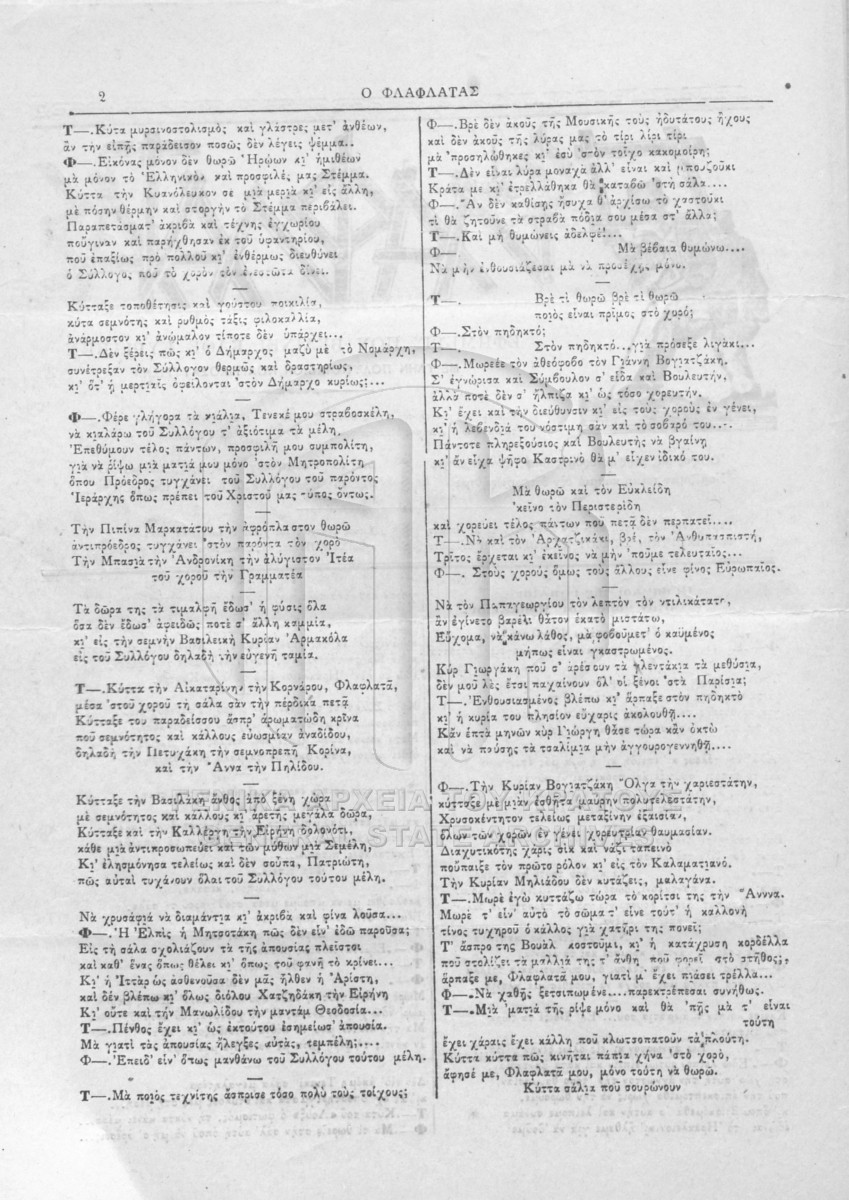 2
Ο ΦΛΑΦΛΑΤΑΣ
Τ—.Κύτα μυρσινοστολισμὸς καὶ γλάστρες μετ' ἀνθέων,
ἂν τὴν εἰπῇς παράδεισον ποσῶς δὲν λέγεις ψέμμα..
Φ—.Εἰκόνας μόνον δὲν θωρῶ Ἡρώων κι' ἡμιθέων
μὰ μόνον τὸ Ἑλληνικὸν καὶ προσφιλές μας Στέμμα.
Κύττα τὴν Κυανόλευκον σε μιὰ μεριὰ κι' εἰς ἄλλη,
μὲ πόσην θέρμην καὶ στοργὴν τὸ Στέμμα περιβάλει.
Παραπετάσματ' ἀκριβὰ καὶ τέχνης ἐγχωρίου
πούγιναν καὶ παρήχθησαν ἐκ τοῦ ὑφαντηρίου,
ποῦ ἐπαξίως πρὸ πολλοῦ κι' ἐνθέρμως διευθύνει
ὁ Σύλλογος ποῦ τὸ χορὸν τὸν ἐνεστῶτα δίνει.
Κύτταξε τοποθέτησις καὶ γούστου ποικιλία,
κύτα σεμνότης καὶ ρυθμὸς τάξις φιλοκαλλία,
ἀνάρμοστον κι' ἀνώμαλον τίποτε δὲν ὑπάρχει...
Τ—.Δὲν ξέρεις πῶς κι' ὁ Δήμαρχος μαζὺ μὲ τὸ Νομάρχη,
συνέτρεξαν τὸν Σύλλογον θερμῶς καὶ δραστηρίως,
κι' ὅτ' ἡ μερτιαῖς ὀφείλονται 'στὸν Δήμαρχο κυρίως;...
Φ—.Φέρε γλήγορα τὰ κιάλια, Τενεκέ μου στραβοσκέλη,
νὰ κιαλάρω τοῦ Συλλόγου τ' ἀξιότιμα τὰ μέλη.
Ἐπεθύμουν τέλος πάντων, προσφιλῆ μου συμπολίτη,
γιὰ νὰ ρίψω μιὰ ματιά μου μόνο 'στὸν Μητροπολίτη
ὅπου Πρόεδρος τυγχάνει τοῦ Συλλόγου τοῦ παρόντος
Ἱεράρχης ὅπως πρέπει τοῦ Χριστοῦ μας τύπος ὄντως.
Τὴν Πιπίνα Μαρκατάτου τὴν ἀφρόπλαστον θωρῶ
ἀντιπρόεδρος τυγχάνει 'στὸν παρόντα τὸν χορὸ
Τὴν Μπασιὰ τὴν Ἀνδρονίκη τὴν ἀλύγιστον Ἰτέα
τοῦ χοροῦ τὴν Γραμματέα
Τὰ δῶρα της τὰ τιμαλφῆ ἔδωσ' ἡ φύσις ὅλα
ὅσα δὲν ἔδωσ' ἀφειδῶς ποτὲ σ' ἄλλη καμμία,
κι' εἰς τὴν σεμνὴν Βασιλεικὴ Κυρίαν Ἀρμακόλα
εἰς τοῦ Συλλόγου δηλαδὴ τὴν εὐγενῆ ταμία.
Τ—.Κύττα τὴν Αἰκαταρίνην τὴν Κορνάρου, Φλαφλατᾶ,
μέσα 'στοῦ χοροῦ τὴ σάλα σὰν τὴν πέρδικα πετᾷ
Κύτταξε του παραδείσσου ἄσπρ' ἀρωματώδη κρῖνα
ποῦ σεμνότητος καὶ κάλλους εὐωσμίαν ἀναδίδου,
δηλαδὴ τὴν Πετυχάκη τὴν σεμνοπρεπῆ Κορίνα,
καὶ τὴν Ἄννα τὴν Πηλίδου.
Κύτταξε τὴν Βασιλάκη ἄνθος ἀπὸ ξένη χώρα
μὲ σεμνότητος καὶ κάλλους κι' ἀρετῆς μεγάλα δῶρα,
Κύτταξε καὶ τὴν Καλλέργη τὴν Εἰρήνη ὁλονότι,
κάθε μιὰ ἀντιπροσωπεύει καὶ τῶν μύθων μιὰ Σεμέλη,
Κι' ἐλησμόνησα τελείως καὶ δὲν σοῦπα, Πατριώτη,
πῶς αὐταὶ τυχάνουν ὅλαι τοῦ Συλλόγου τούτου μέλη.
Νὰ χρυσάφιά νὰ διαμάντια κι' ἀκριβὰ καὶ φίνα λοῦσα...
Φ—.Ἡ Ἐλπὶς ἡ Μητσοτάκη πῶς δὲν εἶν' ἐδῶ παροῦσα;
Εἰς τὴ σάλα σχολιάζουν τὰ τῆς ἀπουσίας πλεῖστοι
καὶ καθ' ἕνας ὅπως θέλει κι' ὅπως τοῦ φανῇ τὸ κρίνει...
Κι' ἡ Ἰττὰρ ὡς ἀσθενοῦσα δὲν μᾶς ἦλθεν ἡ Ἀρίστη,
καὶ δὲν βλέπω κι' ὅλως διόλου Χατζηδάκη τὴν Εἰρήνη
Κι' οὔτε καὶ τὴν Μανωλίδου τὴν μαντὰμ Θεοδοσία...
Τ—.Πένθος ἔχει κι' ὡς ἐκτούτου ἐσημείωσ' ἀπουσία.
Μὰ γιατὶ τὰς ἀπουσίας ἤλεγξες αὐτὰς, τεμπέλη;....
Φ—.Ἐπειδ' εἶν' ὅπως μανθάνω τοῦ Συλλόγου τούτου μέλη.
Τ—.Μὰ ποιὸς τεχνίτης ἄσπρισε τόσο πολὺ τοὺς τοίχους;
Φ—.Βρὲ δὲν ἀκοῦς τῆς Μουσικῆς τοὺς ἡδυτάτους ἤχους
καὶ δὲν ἀκοῦς τῆς λύρας μας τὸ τίρι λίρι τίρι
μὰ 'προσηλώθηκες κι' ἐσὺ 'στὸν τοῖχο κακομοίρη;
Τ—.Δὲν εἶναι λύρα μοναχὰ ἀλλ' εἶναι καὶ μπουζοῦκι
Κράτα με κι' ἐτρελλάθηκα θὰ καταβῶ 'στὴ σάλα....
Φ—.Ἂν δὲν καθίσῃς ἥσυχα θ' ἀρχίσω τὸ χαστοῦκι
τί θὰ ζητοῦνε τὰ στραβὰ πόδια σου μέσα στ' ἄλλα;
Τ—.Καὶ μὴ θυμώνεις ἀδελφέ!...
Φ—. Μὰ βέβαια θυμώνω....
Νὰ μὴν ἐνθουσιάζεσαι μὰ νὰ προσέχῃς μόνο.
Τ—. Βρὲ τί θωρῶ βρὲ τί θωρῶ
ποιὸς εἶναι πρίμος στὸ χορό;
Φ—.Στὸν πηδηκτό;
Τ—. Στὸν πηδηκτὸ...γιὰ πρόσεξε λιγάκι...
Φ—.Μωρέεε τὸν ἀθεόφοβο τὸν Γιάννη Βογιατζάκη.
Σ' ἐγνώρισα καὶ Σύμβουλον σ' εἶδα καὶ Βουλευτὴν,
ἀλλὰ ποτὲ δὲν σ' ἤλπιζα κι' ὡς τόσο χορευτήν.
Κι' ἔχει καὶ τὴν διεύθυνσιν κι' εἰς τοὺς χοροὺς ἐν γένει,
κι' ἡ λεβενδιά του νόστιμη σὰν καὶ τὸ σοβαρό του....
Πάντοτε πληρεξούσιος καὶ Βουλευτὴς νὰ βγαίνῃ
κι' ἂν εἶχα ψῆφο Καστρινὸ θὰ μ' εἶχεν ἰδικό του.
Μὰ θωρῶ καὶ τὸν Εὐκλείδη
'κεῖνο τὸν Περιστερίδη
καὶ χορεύει τέλος πάντων ποῦ πετᾷ δὲν περπατεῖ....
Τ—.Νὰ καὶ τὸν Ἀρχατζικάκι, βρὲ, τὸν Ἀνθυπασπιστή,
Τρίτος ἔρχεται κι' ἐκεῖνος νὰ μὴν 'ποῦμε τελευταῖος...
Φ—. Στοὺς χοροὺς ὅμως τοὺς ἄλλους εἶνε φίνος Εὐρωπαῖος.
Νὰ τὸν Παπαγεωργίου τὸν λεπτὸν τὸν ντιλικάτατο,
ἂν ἐγίνετο βαρέλι θἆτον ἑκατὸ μιστάτω,
Εὔχομα, νὰ κάνω λάθος, μὰ φοβοῦμετ' ὁ καϋμένος
μήπως εἶναι γκαστρωμένος.
Κὺρ Γιωργάκη ποῦ σ' ἀρέσουν τὰ γλεντάκια τὰ μεθύσια,
δὲν μοῦ λὲς ἔτσι παχαίνουν ὅλ' οἱ ξένοι 'στὰ Παρίσια;
Τ—.Ἐνθουσιασμένος βλέπω κι' ἅρπαξε στὸν πηδηκτὸ
κι' ἡ κυρία του πλησίον εὔχαρις ἀκολουθῇ....
Κἂν ἑπτὰ μηνῶν κὺρ Γιώργη θἆσε τώρα κἂν ὀκτὼ
καὶ νὰ παύσῃς τὰ τσαλίμια μὴν ἀγγουρογεννηθῇ....
Φ—.Τὴν Κυρίαν Βογιατζάκη Ὄλγα τὴν χαριεστάτην,
κύτταξε μὲ μιὰν ἐσθῆτα μαύρην πολυτελεστάτην,
Χρυσοκέντητον τελείως μεταξίνην ἐξαισίαν,
ὅλων τῶν χορῶν ἐν γένει χορεύτριαν θαυμασίαν.
Διαχυτικότης χάρις σὶκ καὶ νάζι ταπεινὸ
ποὔπαιξε τὸν πρῶτο ρόλον κι' εἰς τὸν Καλαματιανό.
Τὴν Κυρίαν Μηλιάδου δὲν κυτάζεις, μαλαγάνα.
Τ—.Μωρὲ ἐγὼ κυττάζω τώρα τὸ κορίτσι της τὴν Ἄννα.
Μωρὲ τ' εἶν' αὐτὸ τὸ σῶμα τ' εἶνε τοῦτ' ἡ καλλονὴ
τίνος τυχηροῦ ὁ κάλλος γιὰ χατῆρι της πονεῖ;
Τ' ἄσπρο της Βουὰλ κοστοῦμι, κι' ἡ κατάχρυση κορδέλλα
ποῦ στολίζει τὰ μαλλιά της τ' ἄνθη ποῦ φορεῖ στὸ στῆθος;,
ἅρπαξε με, Φλαφλατᾶ μου, γιατὶ μ' ἔχει πιάσει τρέλλα...
Φ—.Νὰ χαθῇς ξετσιπωμένε....παρεκτρέπεσαι συνήθως.
Τ—.Μιὰ 'ματιά της ρίψε μόνο καὶ θὰ 'πῇς μὰ τ' εἶναι
τούτη
ἔχει χάραις ἔχει κάλλη ποῦ κλωτσοπατοῦν τὰ πλούτη.
Κύττα κύττα πῶς κινῆται πάπια χῆνα 'στὸ χορὸ,
ἄφησέ με, Φλαφλατᾶ μου, μόνο τούτη νὰ θωρῶ.
Κύττα σάλια ποῦ σουρώνουν